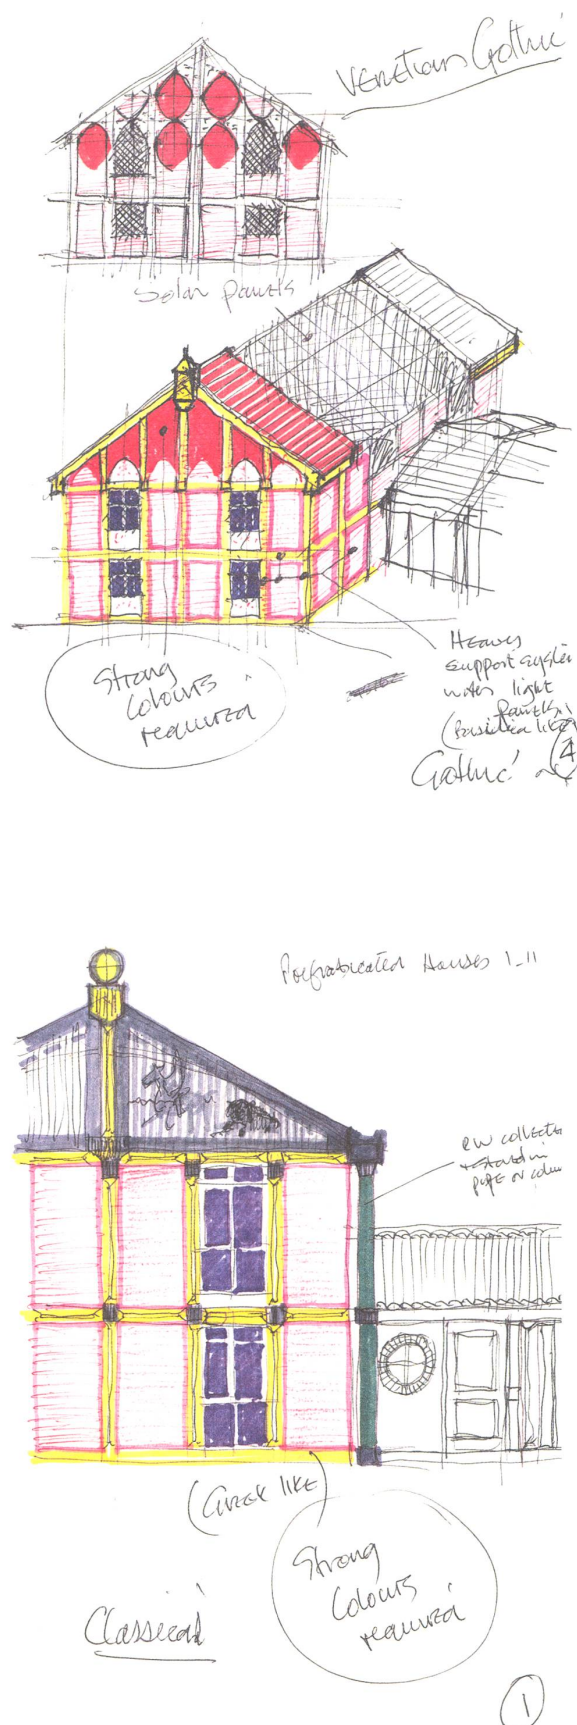 Venetian Gothic
Solar panels
Strong
colours
required
Heavy
support system
with light
panels
(
4
Gothic
Prefabricated Houses 1_11
RW collected
+ stored in
pipe or column
(Greek like)
Strong
Colours
required
Classical
1